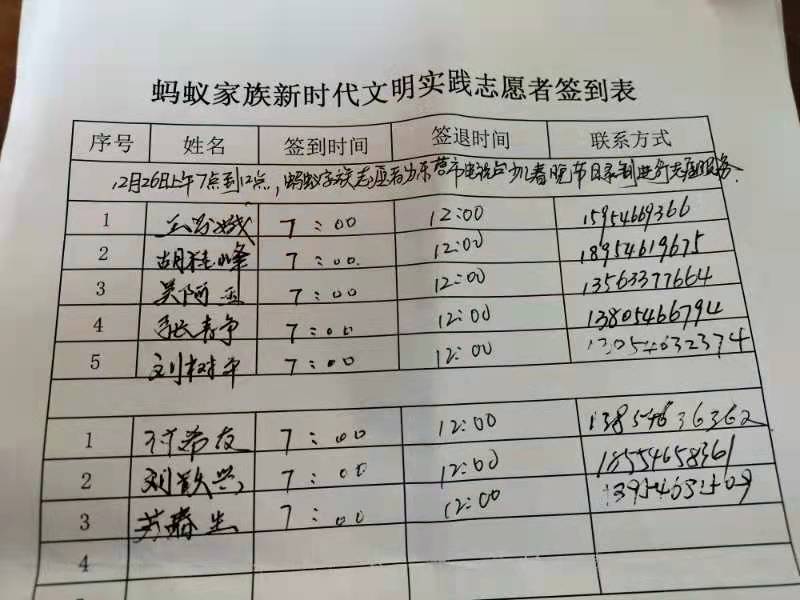 蚂蚁家族新时代文明实践志愿者签到表
序号 姓名 签到时间 签退时间 联系方式
12月26日上午7点到12点,蚂蚁家族志愿者为东营市电视台少儿春晚节目录制进行志愿服务.
1 7:00 12:00 15954669366
2 胡桂峰 7:00. 12:00 18954619675
3 吴阿玉 7:00 12:00 13563377664
4 张青争 7:00 12:00 13805466794
5 刘树平 7:00 12:00 13054632374
1 付希友 7:00 12:00 13854636362
2 刘钦兴 7:00 12:00 18554658361
3 春生 7:00 12:00
4